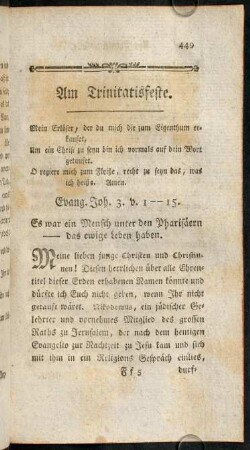 449
Am Trinitatisfeste.
Mein Erlöser, der du mich dir zum Eigenthum er-
kaufet,
Um ein Christ zu seyn bin ich vormals auf dein Wort
getaufet.
O regiere mich zum Fleiße, recht zu seyn das, was
ich heiße. Amen.
Evang. Joh. 3. v. 1—15.
Es war ein Mensch unter den Pharisäern
— das ewige Leben haben.
Meine lieben junge Christen und Christin-
nen! Diesen herrlichen über alle Ehren-
titel dieser Erden erhabenen Namen könnte und
dürfte ich Euch nicht geben, wenn Ihr nicht
getauft wäret. Nikodemus, ein jüdischer Ge-
lehrter und vornehmes Mitglied des grossen
Raths zu Jerusalem, der nach dem heutigen
Evangelio zur Nachtzeit zu Jesu kam und sich
mit ihm in ein Religions Gespräch einlies,
F f 5 durf-